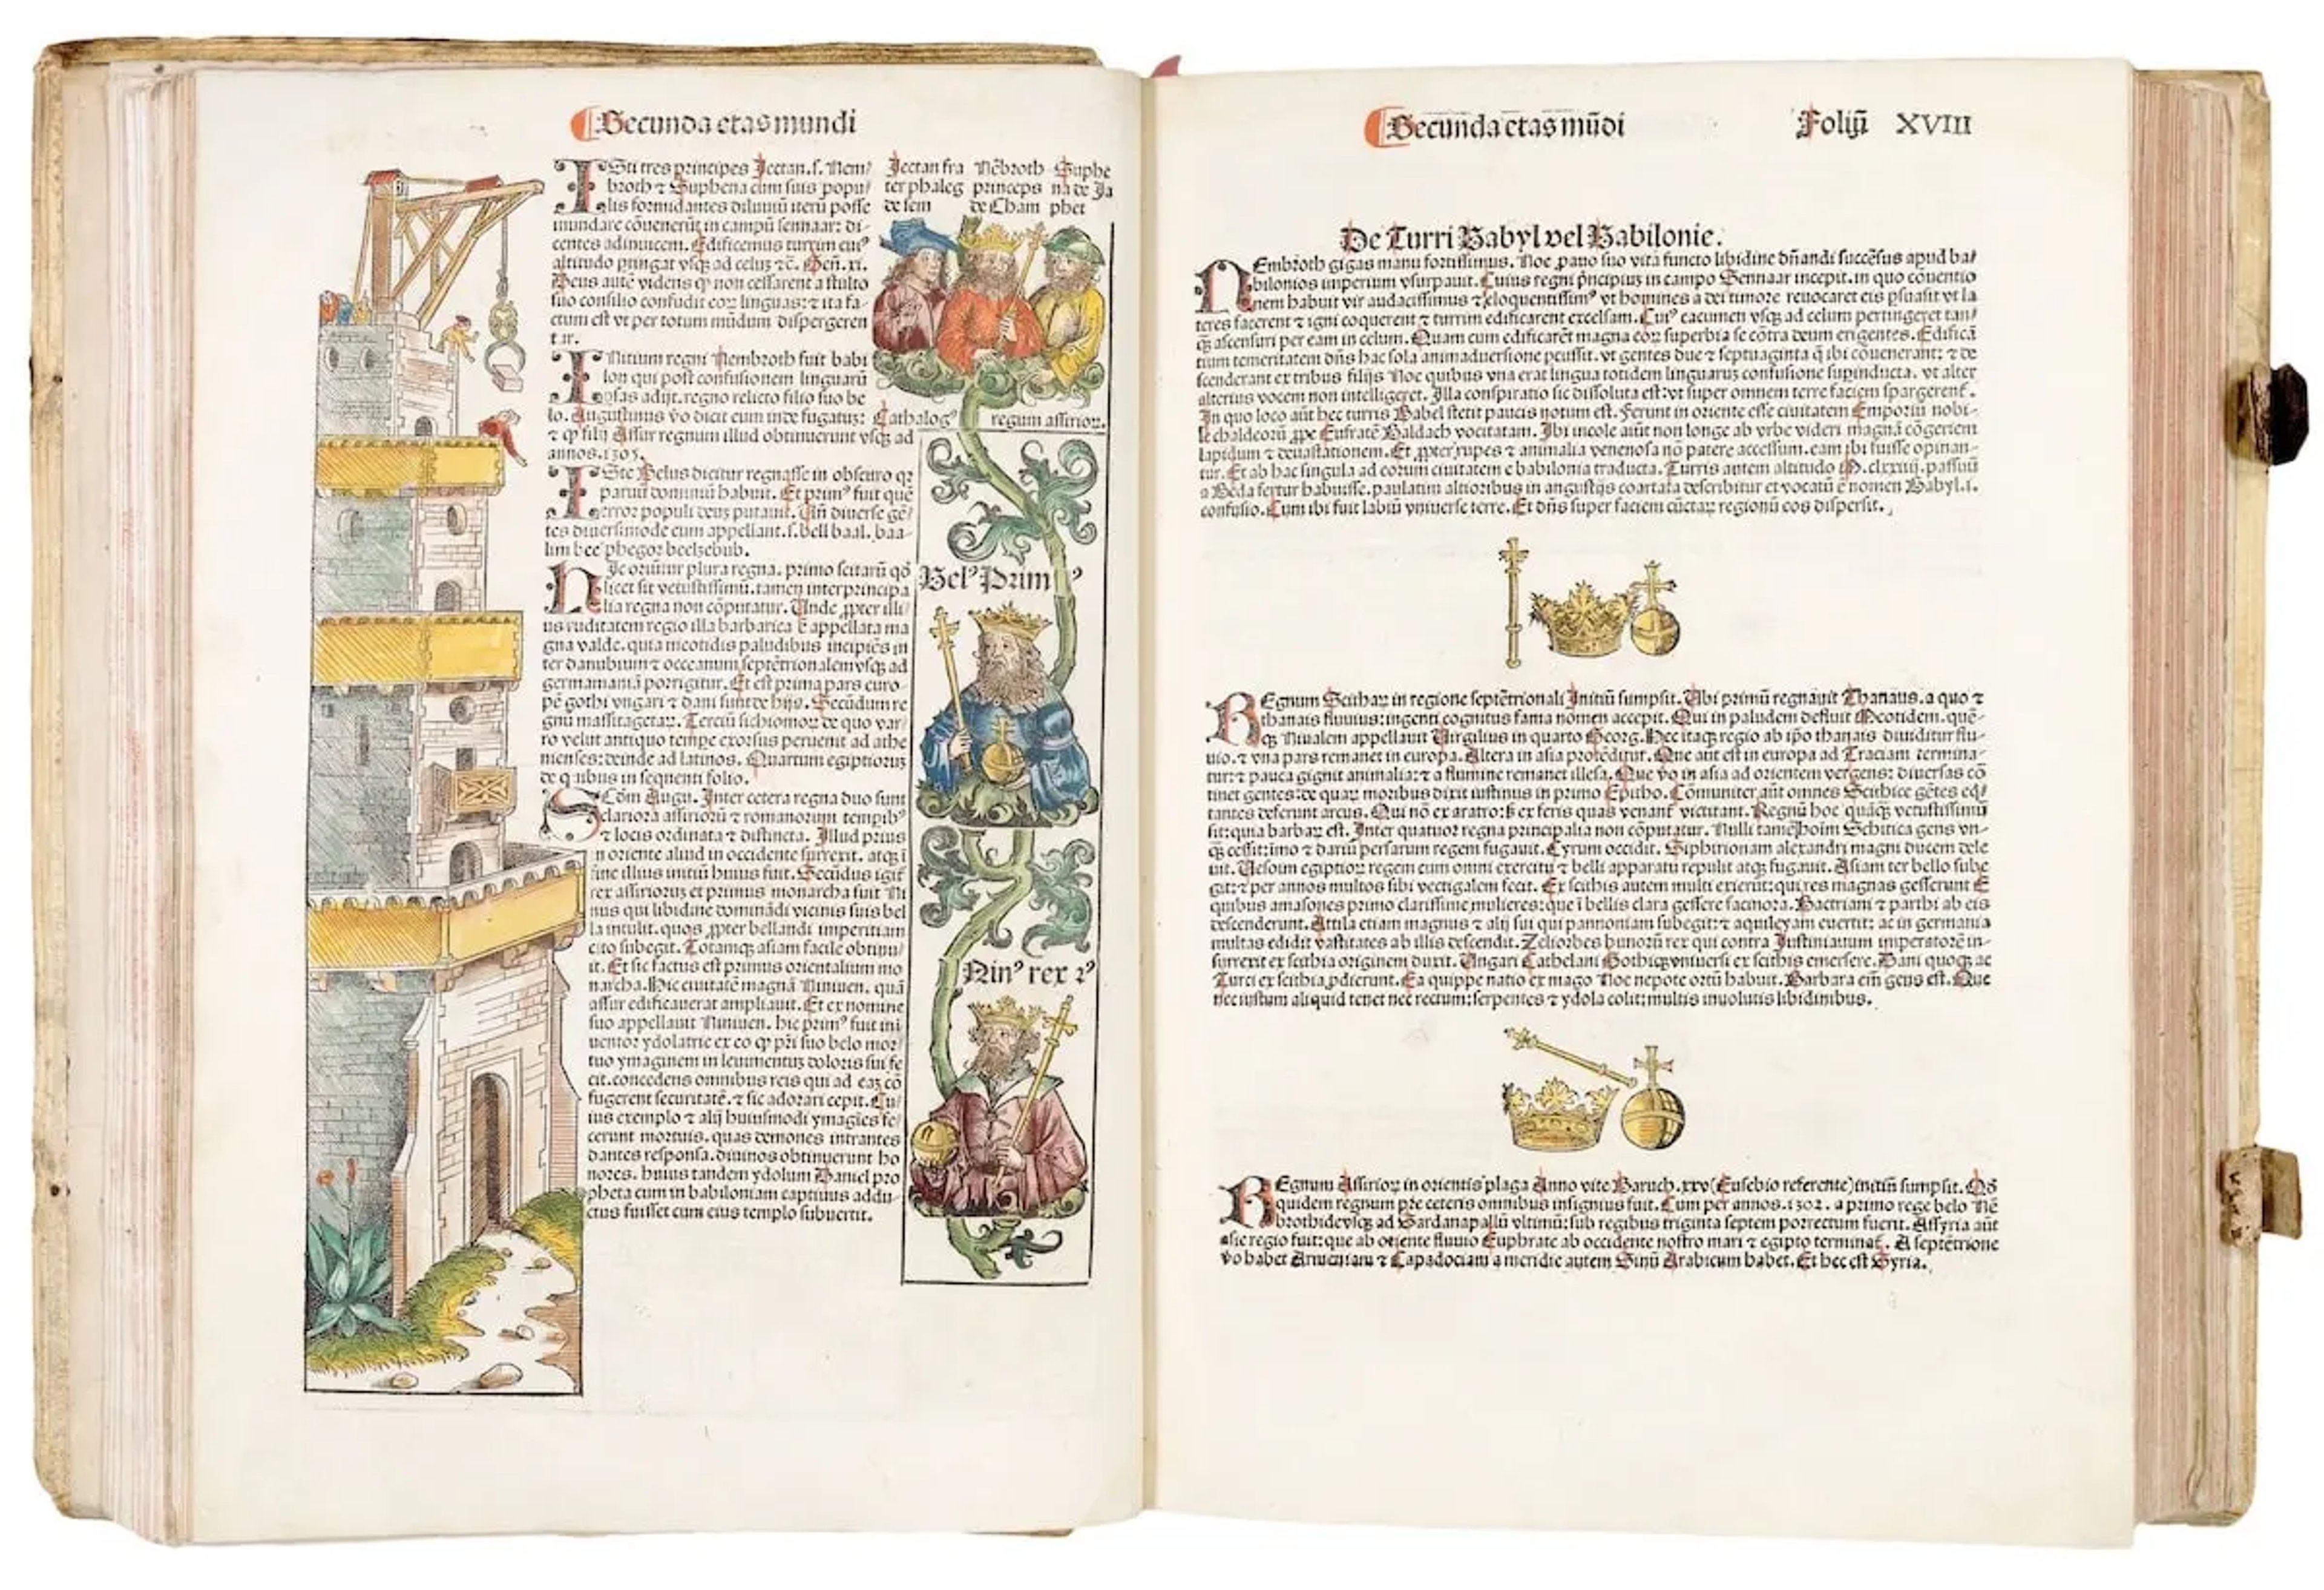 Secunda etas mundi
ISti tres principes Jectan.s. Nem⸗
broth ⁊ Suphena cum suis popu⸗
lis formidantes diluuiū iterū posse
inundare cōuenerūt in campū sennaar: di⸗
centes adinuicem. Edificemus turrim cuiꝰ
altitudo ptingat vsqꝫ ad celuꝫ ⁊c̄. Gen̄. xi.
Deus autē videns ꝙ non cessarent a stulto
suo consilio confudit eoꝝ linguas: ⁊ ita fa⸗
ctum est vt per totum mūdum dispergeren
tur.
INitium regni Nembroth fuit babi
lon qui post confusionem linguarū
ꝑsas adijt. regno relicto filio suo be
lo. Augustinus v̄o dicit eum inde fugatuꝫ:
⁊ ꝙ filij Assur regnum illud obtinuerunt vsqꝫ ad
annos. 1305.
ISte Belus dicitur regnasse in obscuro qꝛ
paruū dominiū habuit. Et primꝰ fuit quē
error populi deuꝫ putauit. Vn̄ diuerse gē⸗
tes diuersimode eum appellant. s. bell baal. baa⸗
lim beelphegor beelzebub.
HIc oriūtur plura regna. primo scitarū qd̄
licet sit vetustissimū. tamen inter principa
lia regna non cōputatur. Vnde ꝓpter illi⸗
us ruditatem regio illa barbarica ē appellata ma
gna valde. quia meotidis paludibus incipiēs in
ter danubium ⁊ occeanum septētrionalem vsqꝫ ad
germaniam porrigitur. Et est prima pars euro⸗
pe gothi vngari ⁊ dani sunt de hijs. Secūdum re
gnū massagetaꝝ. Terciū sichiomoꝝ de quo var⸗
ro velut antiquo tempe exorsus peruenit ad athe
nienses: deinde ad latinos. Quartum egiptioruꝫ
de quibus in sequenti folio.
SCdm̄ Augu. Inter cetera regna duo sunt
clariora assirioꝝ ⁊ romanorum tempibꝰ
⁊ locis ordinata ⁊ distincta. Illud prius
in oriente aliud in occidente surrexit. atqꝫ ī
fine illius initiū huius fuit. Secūdus igit̄
rex assirioruꝫ et primus monarcha fuit Ni
nus qui libidine dominādi vicinis suis bel
la intulit. quos ꝓpter bellandi imperitiam
cito subegit. Totamqꝫ asiam facile obtinu⸗
it. Et sic factus est primus orientalium mo
narcha. Hic ciuitatē magnā Niniuen. quā
assur edificauerat ampliauit. Et ex nomine
suo appellauit Niniuen. hic primꝰ fuit ini
uentor ydolatrie ex eo ꝙ pr̄i suo belo mor⸗
tuo ymaginem in leuimentuꝫ doloris sui fe
cit. concedens omnibus reis qui ad eaꝫ cō
fugerent securitatē. ⁊ sic adorari cepit. Cu⸗
ius exemplo ⁊ alij huiusmodi ymagīes fe⸗
cerunt mortuis. quas demones intrantes
dantes responsa. diuinos obtinuerunt ho
nores. huius tandem ydolum Daniel pro
pheta cum in babiloniam captiuus addu⸗
ctus fuisset cum eius templo subuertit.
Jectan fra
ter phaleg
de sem
Nēbroth
princeps
de Cham
Suphe
na de Ja
phet
Cathalogꝰ regum assirioꝝ.
Belꝰ Primꝰ
Ninꝰ rex 2ꝰ
Secūnda etas mūdi
Foliū XVIII
De Turri Babyl vel Babilonie.
NEmbroth gigas manu fortissimus. Noe ꝓauo suo vita functo libidine dn̄andi succēsus apud ba⸗
bilonios imperium vsurpauit. Cuius regni pn̄cipiuꝫ in campo Sennaar incepit. in quo cōuentio
nem habuit vir audacissimus ⁊ eloquentissimꝰ vt homines a dei timore reuocaret eis psuasit vt la
teres facerent ⁊ igni coquerent ⁊ turrim edificarent excelsam. Cuiꝰ cacumen vsqꝫ ad celum pertingeret tan⸗
qꝫ ascensuri per eam in celum. Quam cum edificarēt magna coꝝ superbia se cōtra deum erigentes. Edificā
tium temeritatem dn̄s hac sola animaduersione pcussit. vt gentes due ⁊ septuaginta q̄ ibi cōuenerant: ⁊ de
scenderant ex tribus filijs Noe quibus vna erat lingua totidem linguaruꝫ confusione supinducta. vt alter
alterius vocem non intelligeret. Illa conspiratio sic dissoluta est: vt super omnem terre faciem spargerent̄.
In quo loco aūt hec turris Babel stetit paucis notum est. Ferunt in oriente esse ciuitatem Emporiū nobi⸗
le chaldeorū ꝓpe Eufratē Baldach vocitatam. Ibi incole aiūt non longe ab vrbe videri magnā cōgeriem
lapidum ⁊ deuastationem. Et ꝓpter rupes ⁊ animalia venenosa nō patere accessum. eam ibi fuisse opinan⸗
tur. Et ab hac singula ad eorum ciuitatem e babilonia traducta. Turris autem altitudo M. clxxiiij. passuū
a Beda fertur habuisse. paulatim altioribus in angustijs coartata describitur et vocatū ē nomen Babyl. i.
confusio. Cum ibi fuit labiū vniuerse terre. Et dn̄s super faciem cūctaꝝ regionū eos dispersit.
REgnum Scithaꝝ in regione septētrionali Initiū sumpsit. Vbi primū regnauit Thanaus. a quo ⁊
thanais fluuius: ingenti cognitus fama nomen accepit. Qui in paludem defluit Meotidem. quē⸗
qꝫ Niualem appellauit Virgilius in quarto Georg. Hec itaqꝫ regio ab ip̄o thanais diuiditur flu⸗
uio. ⁊ vna pars remanet in europa. Altera in asia protēditur. Que aūt est in europa ad Traciam termina⸗
tur: ⁊ pauca gignit animalia: ⁊ a flumine remanet illesa. Que v̄o in asia ad orientem vergens: diuersas cō
tinet gentes: de quaꝝ moribus dixit iustinus in primo Epitho. Cōmuniter aūt omnes Scithice gētes eq̄⸗
tantes deferunt arcus. Qui nō ex aratro: ꝫ ex feris quas venant̄ victitant. Regnū hoc quāqꝫ vetustissimū
sit: quia barbaꝝ est. Inter quatuor regna principalia non cōputatur. Nulli tamē hoīm Schitica gens vn⸗
qꝫ cessit: imo ⁊ dariū persarum regem fugauit. Cyrum occidit. Siphirionam alexandri magni ducem dele
uit. Vesoum egiptioꝝ regem cum omni exercitu ⁊ belli apparatu repulit atqꝫ fugauit. Asiam ter bello sube
git: ⁊ per annos multos sibi vectigalem fecit. Ex scithis autem multi exierūt: qui res magnas gesserunt E
quibus amasones primo clarissime mulieres: que ī bellis clara gessere facinora. Bactriani ⁊ parthi ab eis
descenderunt. Attila etiam magnus ⁊ alij sui qui pannoniam subegit: ⁊ aquileyam euertit: ac in germania
multas edidit vastitates ab illis descendit. Zeliorbes hunorū rex qui contra Justinianum imperatorē in⸗
surrexit ex scithia originem duxit. Vngari Cathelani Gothiqꝫ vniuersi ex scithis emersere. Dani quoqꝫ ac
Turci ex scithia ꝓdierunt. Ea quippe natio ex mago Noe nepote ortū habuit. Barbara em̄ gens est. Que
nec iustum aliquid tenet nec rectum: serpentes ⁊ ydola colit: multis inuolutis libidinibus.
REgnum Assirioꝝ in orientis plaga Anno vite Baruch. xxv (Eusebio referente) initiū sumpsit. Qd̄
quidem regnum pre ceteris omnibus insignius fuit. Cum per annos. 1302. a primo rege belo Nē
brothide vsqꝫ ad Sardanapallū vltimū: sub regibus triginta septem porrectum fuerit. Assyria aūt
asie regio fuit: que ab oriente fluuio Euphrate ab occidente nostro mari ⁊ egipto terminat̄. A septētrione
v̄o habet Armeniam ⁊ Capadociam a meridie autem Sinū Arabicum habet. Et hec est Syria.